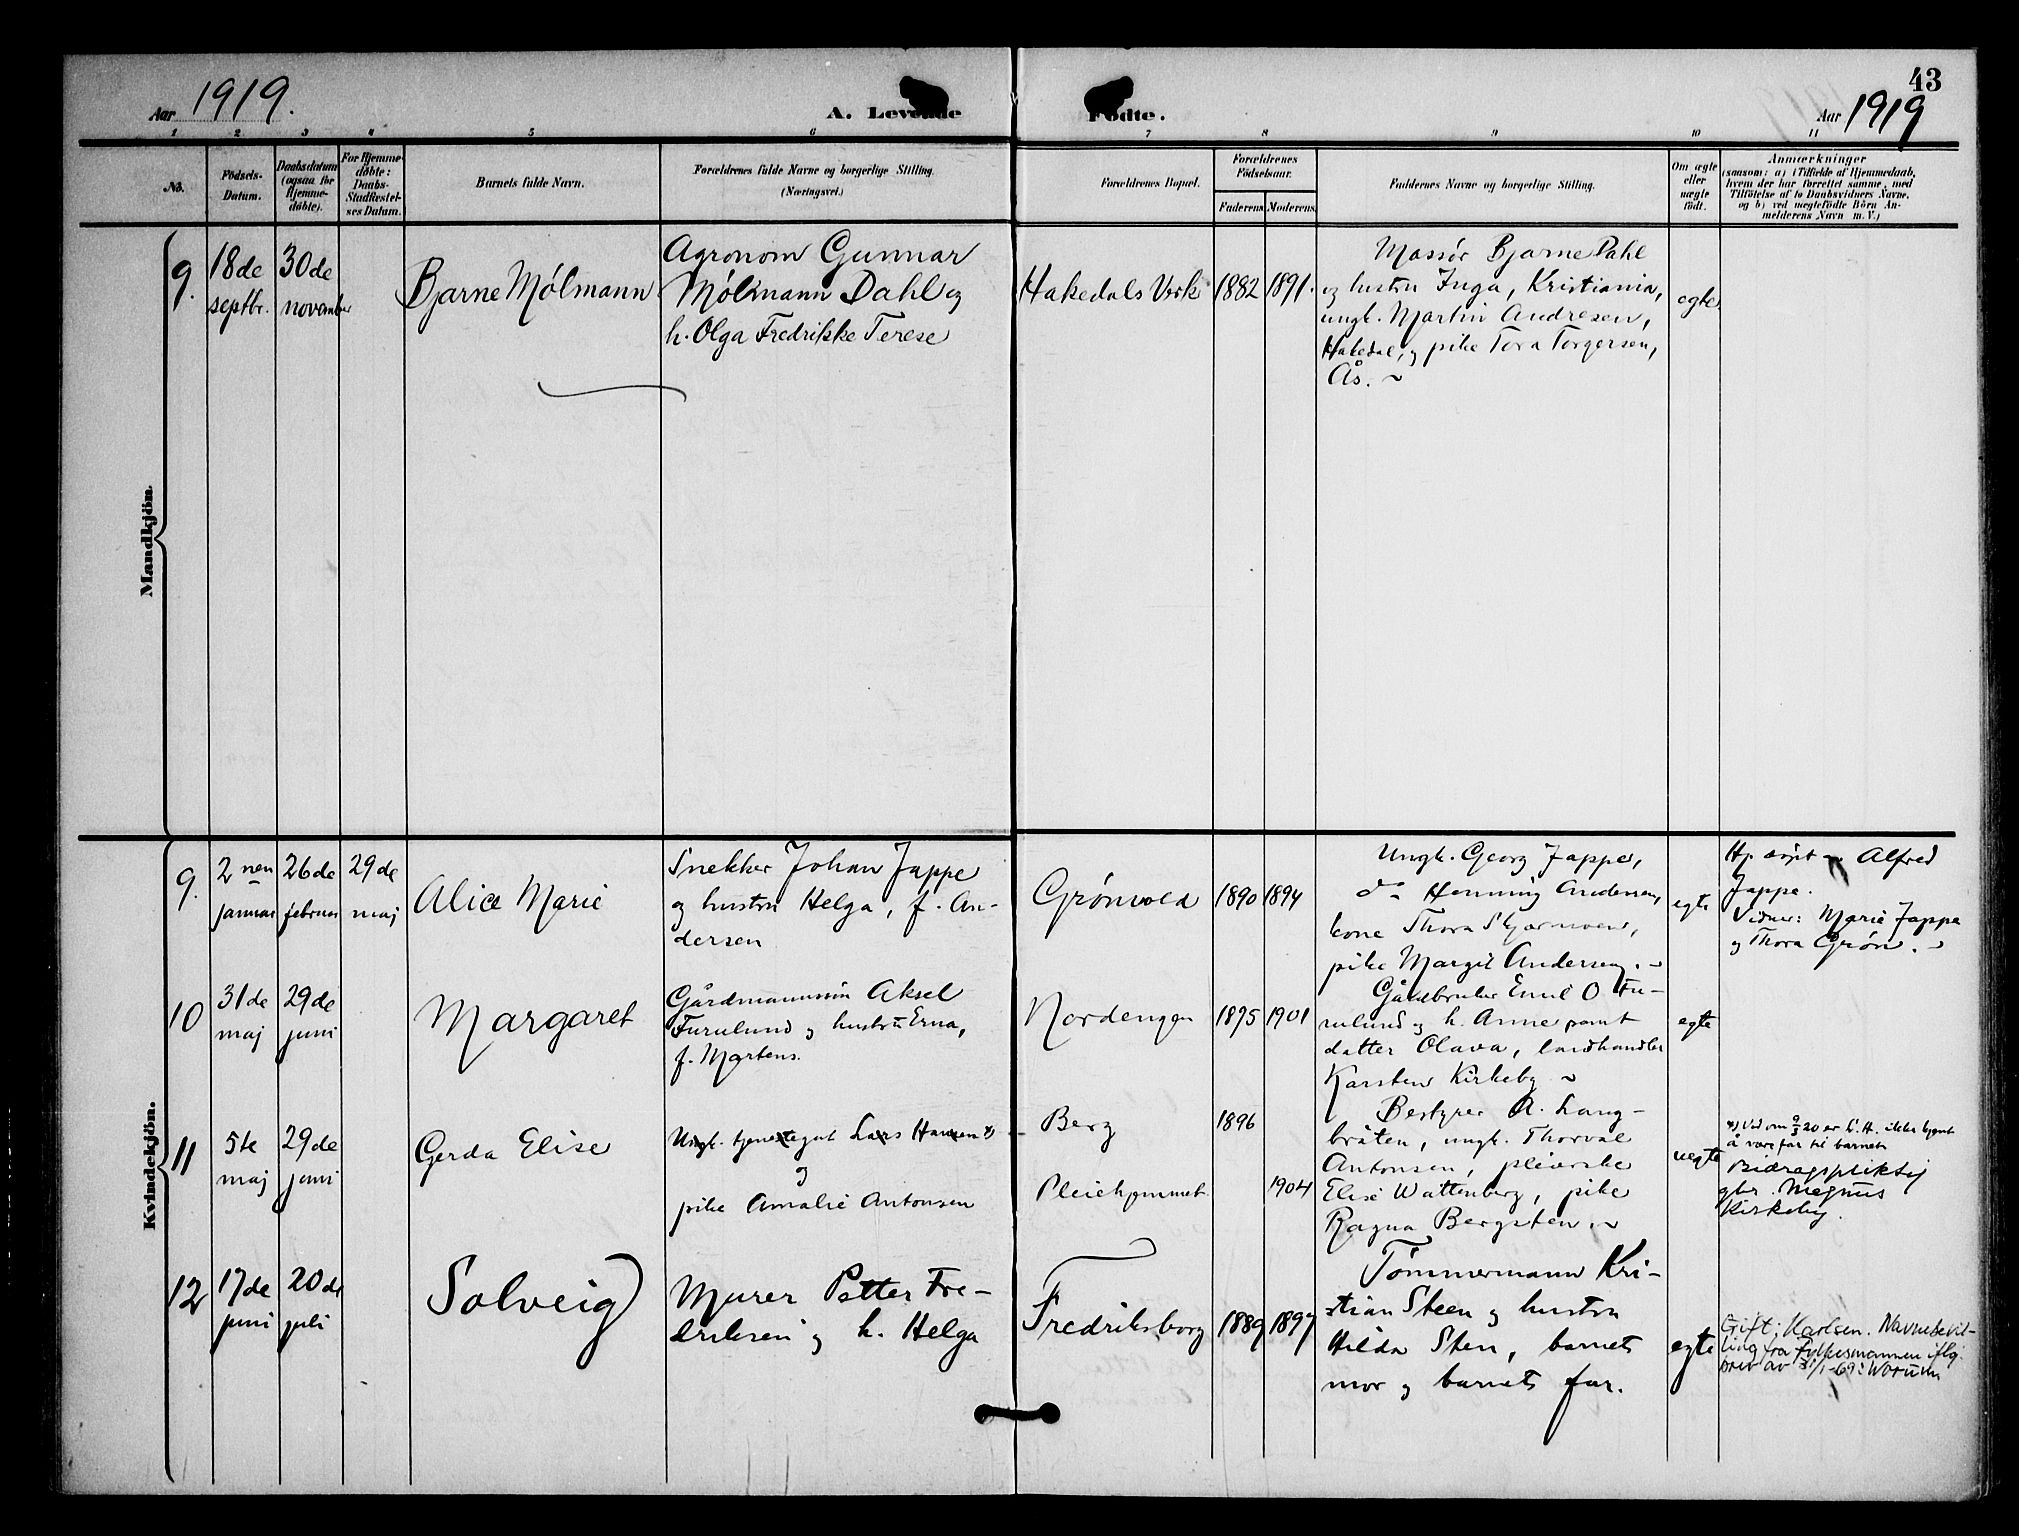 43
Aar 1919.
A. Levende Fødte.
Aar 1919
1 2 3 4 5 6 7 8 9 10 11
No.
Födsels-
Datum.
Daabsdatum
(ogsaa for
Hjemme-
döbte).
For Hjemme-
döbte:
Daabs-
Stadfæstel-
ses Datum.
Barnets fulde Navn.
Forældrenes fulde Navne og borgerlige Stilling.
(Næringsvei.)
Forældrenes Bopæl.
Forældrenes
Födselsaar.
Faderens
Moderens
Faddernes Navne og borgerlige Stilling.
Om ægte
eller
uægte
födt.
Anmærkninger
(saasom: a) i Tilfælde af Hjemmedaab,
hvem der har forrettet samme, med
Tilföielse af to Daabsvidners Navne,
og b) ved uægtefödte Börn An-
melderens Navn m. V.)
Mandkjön.
9.
18de
septbr.
30de
november
Bjarne Mølmann
Agronom Gunnar
Mølmann Dahl og
h. Olga Fredrikke Terese
Hakedals Verk
1882
1891.
Massør Bjarne Dahl
og hustru Inga, Kristiania,
ungk. Martin Andresen,
Hakedal, og pike Tora Torgersen,
Ås. ~
egte
Kvindekjön.
9.
2nen
januar
26de
februar
29de
maj
Alice Marie
Snekker Johan Jappe
og hustru Helga, f. An-
dersen
Grønvold
1890
1894
Ungk. Georg Jappe,
do Henning Andersen,
kone Thora
pike Margit Andersen. ~
egte
Hj. døpt Alfred
Jappe.
Vidner: Marie Jappe
og Thora Grøn. ~
10
31de
maj
29de
juni
Margaret
Gårdmannssøn Aksel
Furulund og hustru Erna,
f. Martens.
Nordengen
1895
1901
Gårdbruker Emil O Fu-
rulund og h. Anne samt
datter Olava, landhandler
Karsten Kirkeby ~
egte
11
5te
maj
29de
juni
Gerda Elise
Ungk. tjenestegut Lars Hansen x)
og
pike Amalie Antonsen
Berg
Pleiehjemmet
1896
1904
Bestyrer A. Lang-
bråten, ungk. Thorvald
Antonsen, pleierske
Elise Wattenberg, pike
Ragna Bergsten. ~
uegte
x) Ved 20 er L. H. ikke kjent
å være far til barnet
Bidragspliktig
gbr. Magnus
Kirkeby.
12
17de
juni
20de
juli
Solveig
Murer Petter Fre-
driksen og h. Helga
Fredriksborg
1889
1897
Tømmermann Kri-
stian Steen og hustru
Hilda Sten, barnets
mor og barnets far.
egte
Gift: Karlsen. Navnebevil-
ling fra Fylkesmannen iflg.
brev av 31/1-69: